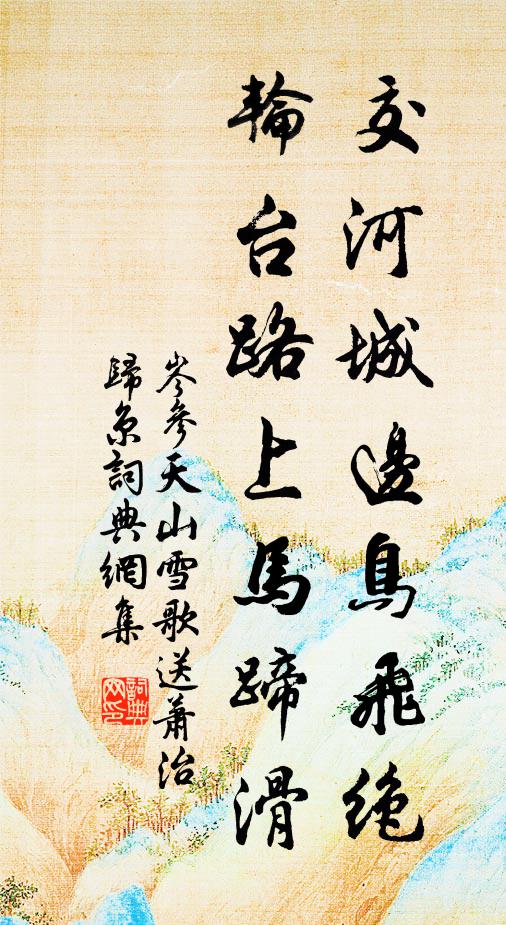 交河城邊鳥飛絶
輪台路上馬蹄滑
岑參天山雪歌送蕭治
歸京詞典網集
詞典網印